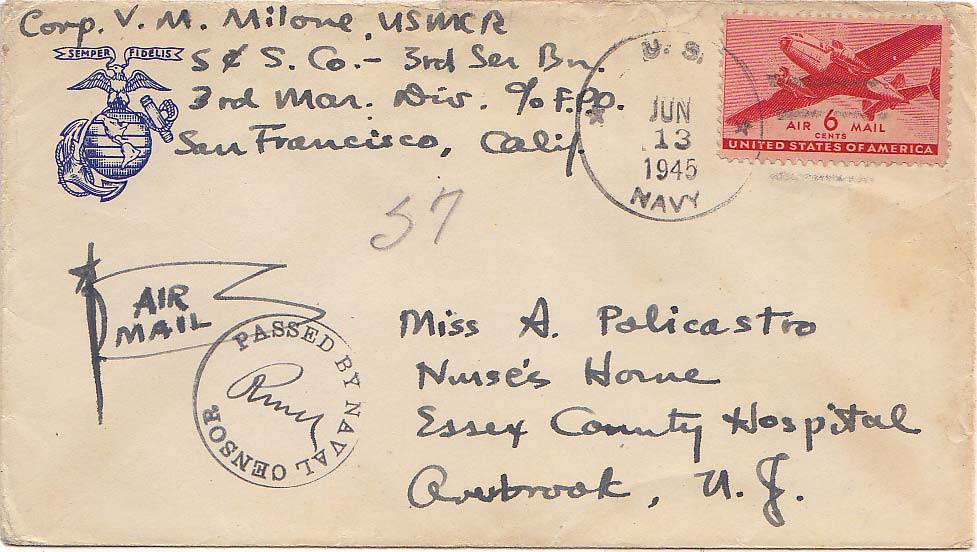 Corp. V. M. Milone, USMCR
S & S. Co. - 3rd Ser Bn.
3rd Mar. Div. c/o F.P.O.
San Francisco, Calif.
SEMPER FIDELIS
U. S.
JUN
13
1945
NAVY
AIR 6 MAIL
CENTS
UNITED STATES OF AMERICA
57
AIR
MAIL
PASSED BY NAVAL CENSOR
Miss A. Policastro
Nurse's Home
Essex County Hospital
Overbrook, N.J.